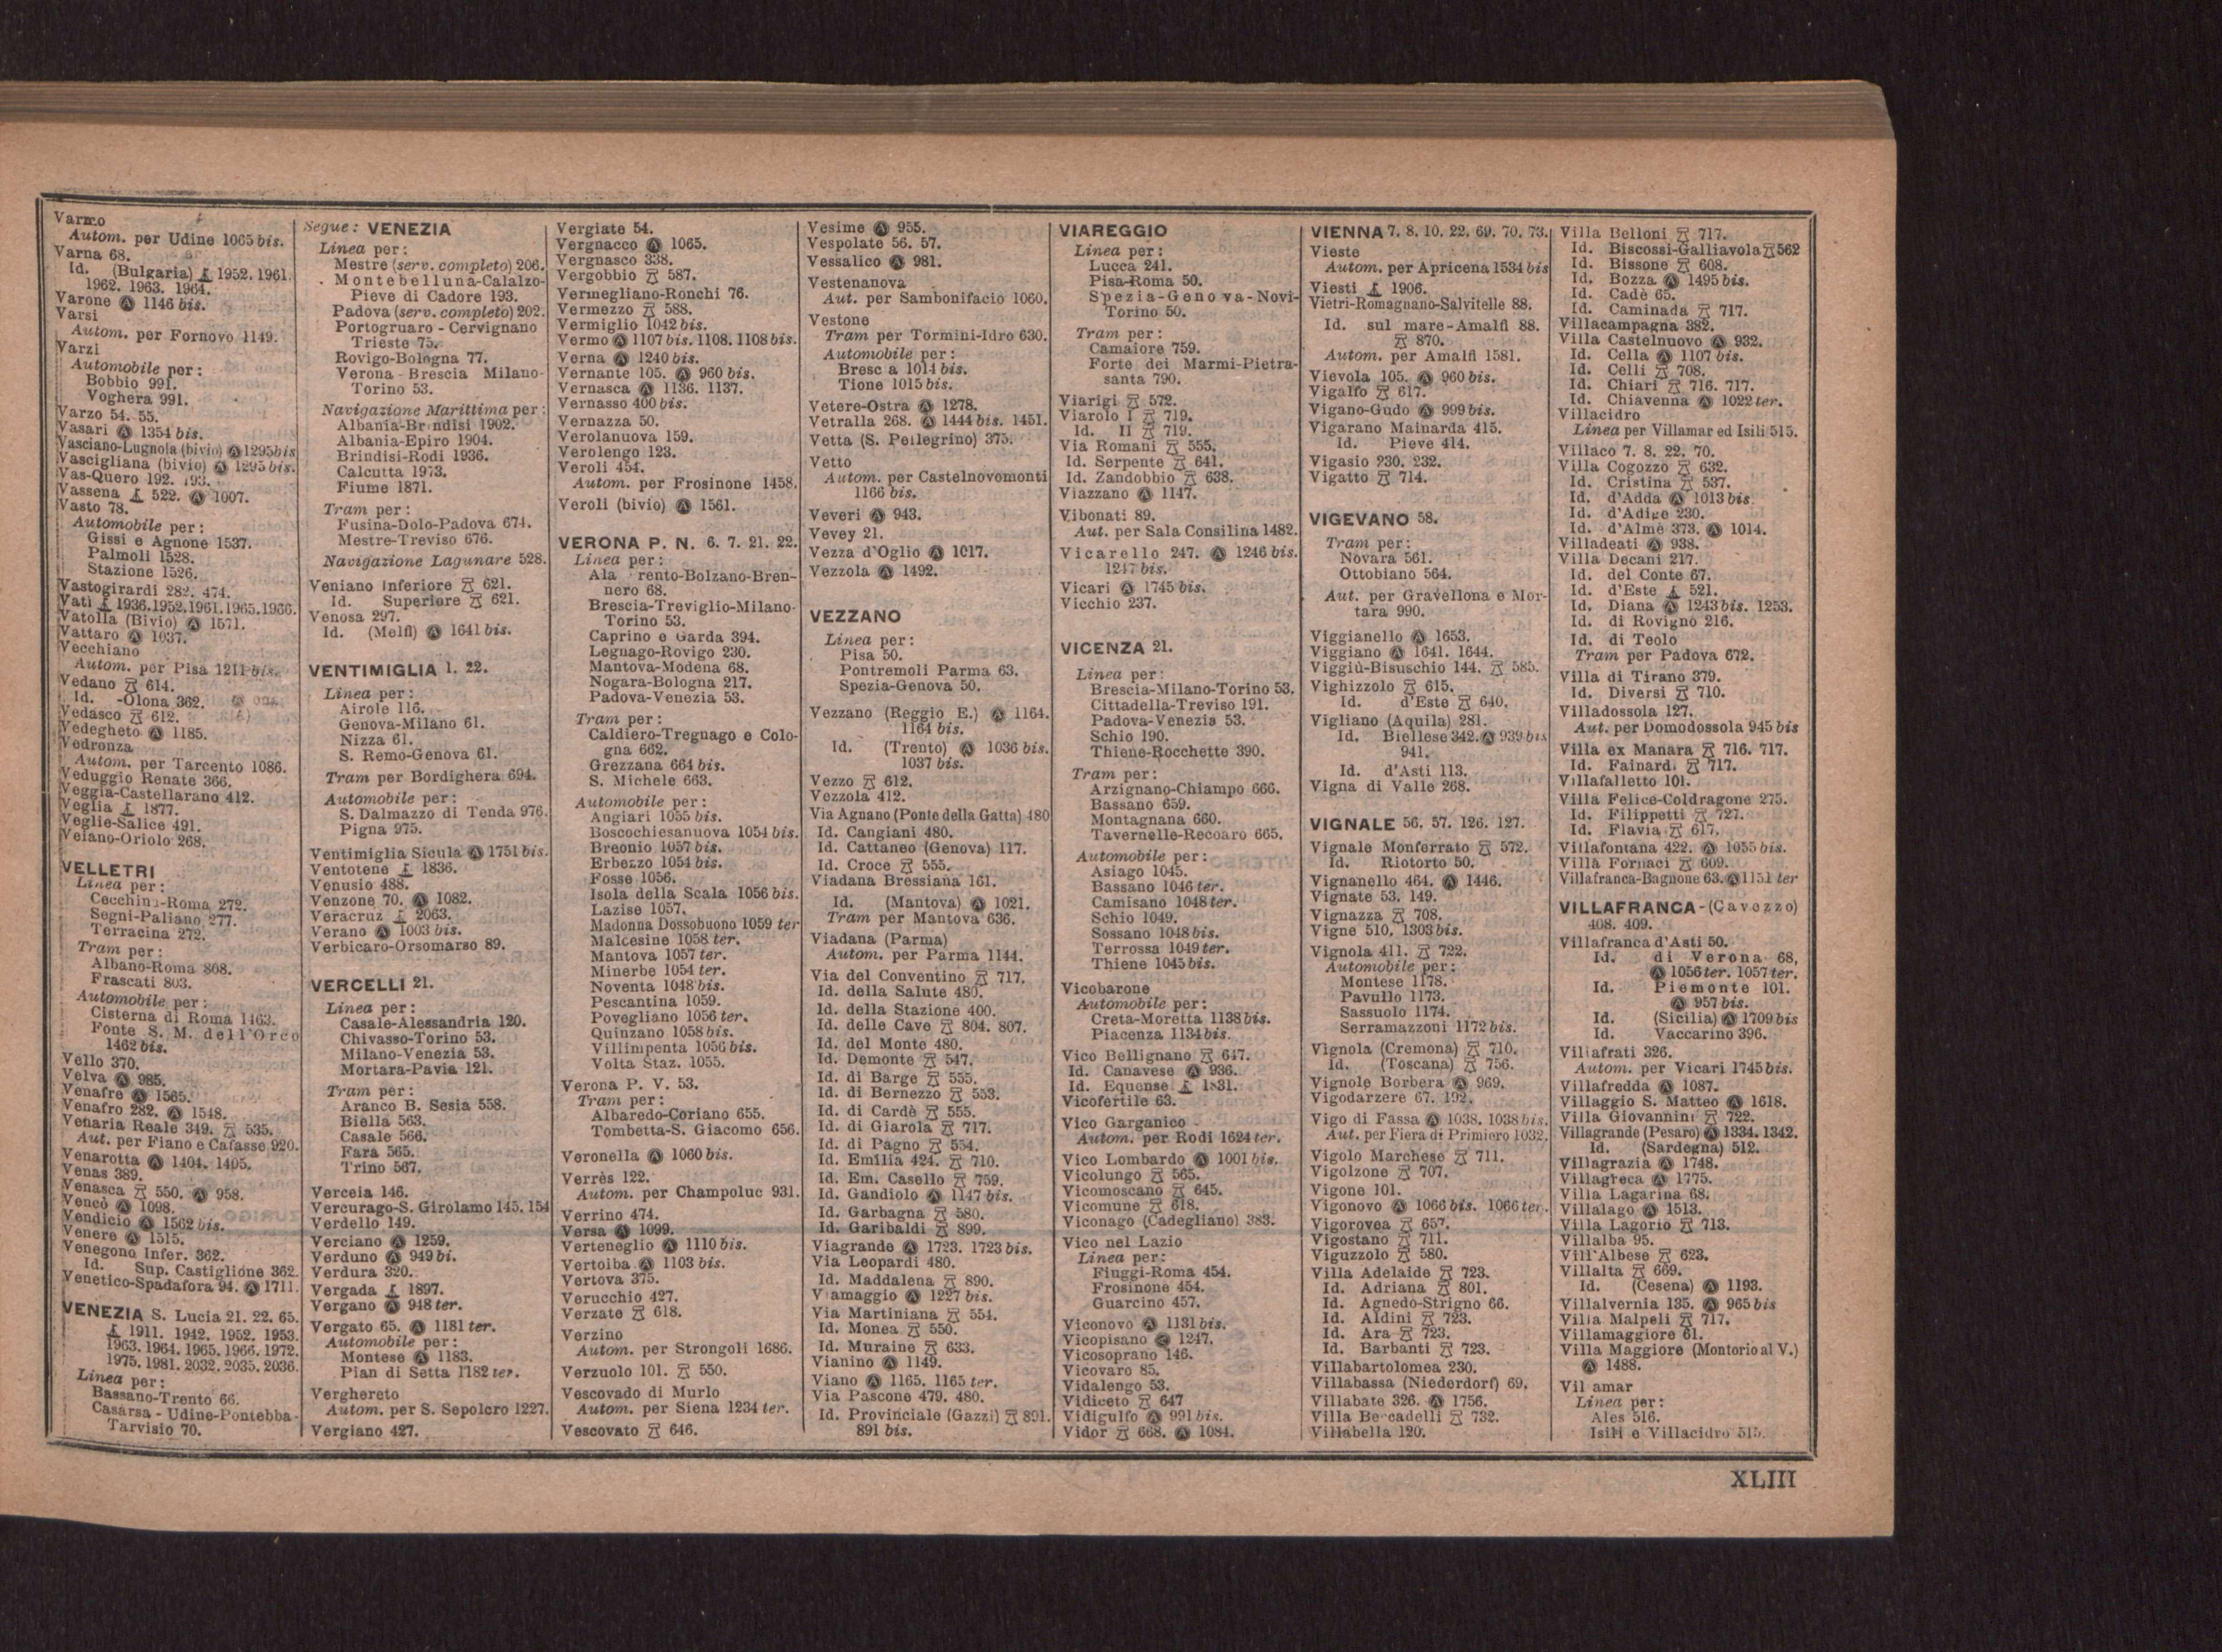 Varmo
Autom. per Udine 1065 bis.
Varna 68.
Id. (Bulgaria) 1952. 1961.
1962. 1963. 1964.
Varone Ⓐ 1146 bis.
Varsi
Autom. per Fornovo 1149.
Varzi
Automobile per:
Bobbio 991.
Voghera 991.
Varzo 54. 55.
Vasari Ⓐ 1354 bis.
Vasciano-Lugnola (bivio) Ⓐ 1295 bis
Vascigliana (bivio) Ⓐ 1295 bis.
Vas-Quero 192. 193.
Vassena 522. Ⓐ 1007.
Vasto 78.
Automobile per:
Gissi e Agnone 1537.
Palmoli 1528.
Stazione 1526.
Vastogirardi 282. 474.
Vati 1936. 1952. 1961. 1965. 1966.
Vatolla (Bivio) Ⓐ 1571.
Vattaro Ⓐ 1037.
Vecchiano
Autom. per Pisa 1211 bis.
Vedano 614.
Id. -Olona 362.
Vedasco 612.
Vedegheto Ⓐ 1185.
Vedronza
Autom. per Tarcento 1086.
Veduggio Renate 366.
Veggia-Castellarano 412.
Veglia 1877.
Veglie-Salice 491.
Veiano-Oriolo 268.
VELLETRI
Linea per:
Cecchina-Roma 272.
Segni-Paliano 277.
Terracina 272.
Tram per:
Albano-Roma 808.
Frascati 803.
Automobile per:
Cisterna di Roma 1463.
Fonte S. M. dell'Orco
1462 bis.
Vello 370.
Velva Ⓐ 985.
Venafre Ⓐ 1565.
Venafro 282. Ⓐ 1548.
Venaria Reale 349. 535.
Aut. per Fiano e Cafasse 920.
Venarotta Ⓐ 1404. 1405.
Venas 389.
Venasca 550. Ⓐ 958.
Vencò Ⓐ 1098.
Vendicio Ⓐ 1562 bis.
Venere Ⓐ 1515.
Venegono Infer. 362.
Id. Sup. Castiglione 362.
Venetico-Spadafora 94. Ⓐ 1711.
VENEZIA S. Lucia 21. 22. 65.
1911. 1942. 1952. 1953.
1963. 1964. 1965. 1966. 1972.
1975. 1981. 2032. 2035. 2036.
Linea per:
Bassano-Trento 66.
Casarsa - Udine-Pontebba-
Tarvisio 70.
Segue: VENEZIA
Linea per:
Mestre (serv. completo) 206.
Montebelluna-Calalzo-
Pieve di Cadore 193.
Padova (serv. completo) 202.
Portogruaro - Cervignano
Trieste 75.
Rovigo-Bologna 77.
Verona - Brescia Milano-
Torino 53.
Navigazione Marittima per:
Albania-Brindisi 1902.
Albania-Epiro 1904.
Brindisi-Rodi 1936.
Calcutta 1973.
Fiume 1871.
Tram per:
Fusina-Dolo-Padova 674.
Mestre-Treviso 676.
Navigazione Lagunare 528.
Veniano Inferiore 621.
Id. Superiore 621.
Venosa 297.
Id. (Melfi) Ⓐ 1641 bis.
VENTIMIGLIA 1. 22.
Linea per:
Airole 116.
Genova-Milano 61.
Nizza 61.
S. Remo-Genova 61.
Tram per Bordighera 694.
Automobile per:
S. Dalmazzo di Tenda 976.
Pigna 975.
Ventimiglia Sicula Ⓐ 1751 bis.
Ventotene 1836.
Venusio 488.
Venzone 70. Ⓐ 1082.
Veracruz 2063.
Verano Ⓐ 1003 bis.
Verbicaro-Orsomarso 89.
VERCELLI 21.
Linea per:
Casale-Alessandria 120.
Chivasso-Torino 53.
Milano-Venezia 53.
Mortara-Pavia 121.
Tram per:
Aranco B. Sesia 558.
Biella 563.
Casale 566.
Fara 565.
Trino 567.
Verceia 146.
Vercurago-S. Girolamo 145. 154
Verdello 149.
Verciano Ⓐ 1259.
Verduno Ⓐ 949 bi.
Verdura 320.
Vergada 1897.
Vergano Ⓐ 948 ter.
Vergato 65. Ⓐ 1181 ter.
Automobile per:
Montese Ⓐ 1183.
Pian di Setta 1182 ter.
Verghereto
Autom. per S. Sepolcro 1227.
Vergiano 427.
Vergiate 54.
Vergnacco Ⓐ 1065.
Vergnasco 338.
Vergobbio 587.
Vermegliano-Ronchi 76.
Vermezzo 588.
Vermiglio 1042 bis.
Vermo Ⓐ 1107 bis. 1108. 1108 bis.
Verna Ⓐ 1240 bis.
Vernante 105. Ⓐ 960 bis.
Vernasca Ⓐ 1136. 1137.
Vernasso 400 bis.
Vernazza 50.
Verolanuova 159.
Verolengo 123.
Veroli 454.
Autom. per Frosinone 1458.
Veroli (bivio) Ⓐ 1561.
VERONA P. N. 6. 7. 21. 22.
Linea per:
Ala rento-Bolzano-Bren-
nero 68.
Brescia-Treviglio-Milano-
Torino 53.
Caprino e Garda 394.
Legnago-Rovigo 230.
Mantova-Modena 68.
Nogara-Bologna 217.
Padova-Venezia 53.
Tram per:
Caldiero-Tregnago e Colo-
gna 662.
Grezzana 664 bis.
S. Michele 663.
Automobile per:
Angiari 1055 bis.
Boscochiesanuova 1054 bis.
Breonio 1057 bis.
Erbezzo 1054 bis.
Fosse 1056.
Isola della Scala 1056 bis.
Lazise 1057.
Madonna Dossobuono 1059 ter
Malcesine 1058 ter.
Mantova 1057 ter.
Minerbe 1054 ter.
Noventa 1048 bis.
Pescantina 1059.
Povegliano 1056 ter.
Quinzano 1058 bis.
Villimpenta 1056 bis.
Volta Staz. 1055.
Verona P. V. 53.
Tram per:
Albaredo-Coriano 655.
Tombetta-S. Giacomo 656.
Veronella Ⓐ 1060 bis.
Verrès 122.
Autom. per Champoluc 931.
Verrino 474.
Versa Ⓐ 1099.
Verteneglio Ⓐ 1110 bis.
Vertoiba Ⓐ 1103 bis.
Vertova 375.
Verucchio 427.
Verzate 618.
Verzino
Autom. per Strongoli 1686.
Verzuolo 101. 550.
Vescovado di Murlo
Autom. per Siena 1234 ter.
Vescovato 646.
Vesime Ⓐ 955.
Vespolate 56. 57.
Vessalico Ⓐ 981.
Vestenanova
Aut. per Sambonifacio 1060.
Vestone
Tram per Tormini-Idro 630.
Automobile per:
Bresc a 1014 bis.
Tione 1015 bis.
Vetere-Ostra Ⓐ 1278.
Vetralla 268. Ⓐ 1444 bis. 1451.
Vetta (S. Pellegrino) 375.
Vetto
Autom. per Castelnovomonti
1166 bis.
Veveri Ⓐ 943.
Vevey 21.
Vezza d'Oglio Ⓐ 1017.
Vezzola Ⓐ 1492.
VEZZANO
Linea per:
Pisa 50.
Pontremoli Parma 63.
Spezia-Genova 50.
Vezzano (Reggio E.) Ⓐ 1164.
1164 bis.
Id. (Trento) Ⓐ 1036 bis.
1037 bis.
Vezzo 612.
Vezzola 412.
Via Agnano (Ponte della Gatta) 480
Id. Cangiani 480.
Id. Cattaneo (Genova) 117.
Id. Croce 555.
Viadana Bressiana 161.
Id. (Mantova) Ⓐ 1021.
Tram per Mantova 636.
Viadana (Parma)
Autom. per Parma 1144.
Via del Conventino 717.
Id. della Salute 480.
Id. della Stazione 400.
Id. delle Cave 804. 807.
Id. del Monte 480.
Id. Demonte 547.
Id. di Barge 555.
Id. di Bernezzo 553.
Id. di Cardè 555.
Id. di Giarola 717.
Id. di Pagno 554.
Id. Emilia 424. 710.
Id. Em. Casello 759.
Id. Gandiolo Ⓐ 1147 bis.
Id. Garbagna 580.
Id. Garibaldi 899.
Viagrande Ⓐ 1723. 1723 bis.
Via Leopardi 480.
Id. Maddalena 890.
Viamaggio Ⓐ 1227 bis.
Via Martiniana 554.
Id. Monea 550.
Id. Muraine 633.
Vianino Ⓐ 1149.
Viano Ⓐ 1165. 1165 ter.
Via Pascone 479. 480.
Id. Provinciale (Gazzi) 891.
891 bis.
VIAREGGIO
Linea per:
Lucca 241.
Pisa-Roma 50.
Spezia-Genova-Novi-
Torino 50.
Tram per:
Camaiore 759.
Forte dei Marmi-Pietra-
santa 790.
Viarigi 572.
Viarolo I 719.
Id. II 719.
Via Romani 555.
Id. Serpente 641.
Id. Zandobbio 638.
Viazzano Ⓐ 1147.
Vibonati 89.
Aut. per Sala Consilina 1482.
Vicarello 247. Ⓐ 1246 bis.
1247 bis.
Vicari Ⓐ 1745 bis.
Vicchio 237.
VICENZA 21.
Linea per:
Brescia-Milano-Torino 53.
Cittadella-Treviso 191.
Padova-Venezia 53.
Schio 190.
Thiene-Rocchette 390.
Tram per:
Arzignano-Chiampo 666.
Bassano 659.
Montagnana 660.
Tavernelle-Recoaro 665.
Automobile per:
Asiago 1045.
Bassano 1046 ter.
Camisano 1048 ter.
Schio 1049.
Sossano 1048 bis.
Terrossa 1049 ter.
Thiene 1045 bis.
Vicobarone
Automobile per:
Creta-Moretta 1138 bis.
Piacenza 1134 bis.
Vico Bellignano 647.
Id. Canavese Ⓐ 936.
Id. Equense 1831.
Vicofertile 63.
Vico Garganico
Autom. per Rodi 1624 ter.
Vico Lombardo Ⓐ 1001 bis.
Vicolungo 565.
Vicomoscano 645.
Vicomune 618.
Viconago (Cadegliano) 383.
Vico nel Lazio
Linea per:
Fiuggi-Roma 454.
Frosinone 454.
Guarcino 457.
Viconovo Ⓐ 1131 bis.
Vicopisano Ⓐ 1247.
Vicosoprano 146.
Vicovaro 85.
Vidalengo 53.
Vidiceto 647
Vidigulfo Ⓐ 991 bis.
Vidor 668. Ⓐ 1084.
VIENNA 7. 8. 10. 22. 69. 70. 73.
Vieste
Autom. per Apricena 1534 bis
Viesti 1906.
Vietri-Romagnano-Salvitelle 88.
Id. sul mare-Amalfi 88.
870.
Autom. per Amalfi 1581.
Vievola 105. Ⓐ 960 bis.
Vigalfo 617.
Vigano-Gudo Ⓐ 999 bis.
Vigarano Mainarda 415.
Id. Pieve 414.
Vigasio 230. 232.
Vigatto 714.
VIGEVANO 58.
Tram per:
Novara 561.
Ottobiano 564.
Aut. per Gravellona e Mor-
tara 990.
Viggianello Ⓐ 1653.
Viggiano Ⓐ 1641. 1644.
Viggiù-Bisuschio 144. 585.
Vighizzolo 615.
Id. d'Este 640.
Vigliano (Aquila) 281.
Id. Biellese 342. Ⓐ 939 bis
941.
Id. d'Asti 113.
Vigna di Valle 268.
VIGNALE 56. 57. 126. 127.
Vignale Monferrato 572.
Id. Riotorto 50.
Vignanello 464. Ⓐ 1446.
Vignate 53. 149.
Vignazza 708.
Vigne 510. 1303 bis.
Vignola 411. 722.
Automobile per:
Montese 1178.
Pavullo 1173.
Sassuolo 1174.
Serramazzoni 1172 bis.
Vignola (Cremona) 710.
Id. (Toscana) 756.
Vignole Borbera Ⓐ 969.
Vigodarzere 67. 192.
Vigo di Fassa Ⓐ 1038. 1038 bis.
Aut. per Fiera di Primiero 1032.
Vigolo Marchese 711.
Vigolzone 707.
Vigone 101.
Vigonovo Ⓐ 1066 bis. 1066 ter.
Vigorovea 657.
Vigostano 711.
Viguzzolo 580.
Villa Adelaide 723.
Id. Adriana 801.
Id. Agnedo-Strigno 66.
Id. Aldini 723.
Id. Ara 723.
Id. Barbanti 723.
Villabartolomea 230.
Villabassa (Niederdorf) 69.
Villabate 326. Ⓐ 1756.
Villa Beccadelli 732.
Villabella 120.
Villa Belloni 717.
Id. Biscossi-Galliavola 562
Id. Bissone 608.
Id. Bozza Ⓐ 1495 bis.
Id. Cadè 65.
Id. Caminada 717.
Villacampagna 382.
Villa Castelnuovo Ⓐ 932.
Id. Cella Ⓐ 1107 bis.
Id. Celli 708.
Id. Chiari 716. 717.
Id. Chiavenna Ⓐ 1022 ter.
Villacidro
Linea per Villamar ed Isili 515.
Villaco 7. 8. 22. 70.
Villa Cogozzo 632.
Id. Cristina 537.
Id. d'Adda Ⓐ 1013 bis.
Id. d'Adige 230.
Id. d'Almè 373. Ⓐ 1014.
Villadeati Ⓐ 938.
Villa Decani 217.
Id. del Conte 67.
Id. d'Este 521.
Id. Diana Ⓐ 1243 bis. 1253.
Id. di Rovigno 216.
Id. di Teolo
Tram per Padova 672.
Villa di Tirano 379.
Id. Diversi 710.
Villadossola 127.
Aut. per Domodossola 945 bis
Villa ex Manara 716. 717.
Id. Fainardi 717.
Villafalletto 101.
Villa Felice-Coldragone 275.
Id. Filippetti 727.
Id. Flavia 617.
Villafontana 422. Ⓐ 1055 bis.
Villa Fornaci 609.
Villafranca-Bagnone 63. Ⓐ 1151 ter
VILLAFRANCA-(Cavezzo)
408. 409.
Villafranca d'Asti 50.
Id. di Verona 68,
Ⓐ 1056 ter. 1057 ter.
Id. Piemonte 101.
Ⓐ 957 bis.
Id. (Sicilia) Ⓐ 1709 bis
Id. Vaccarino 396.
Villafrati 326.
Autom. per Vicari 1745 bis.
Villafredda Ⓐ 1087.
Villaggio S. Matteo Ⓐ 1618.
Villa Giovannini 722.
Villagrande (Pesaro) Ⓐ 1334. 1342.
Id. (Sardegna) 512.
Villagrazia Ⓐ 1748.
Villagreca Ⓐ 1775.
Villa Lagarina 68.
Villalago Ⓐ 1513.
Villa Lagorio 713.
Villalba 95.
Vill'Albese 623.
Villalta 669.
Id. (Cesena) Ⓐ 1193.
Villalvernia 135. Ⓐ 965 bis
Villa Malpeli 717.
Villamaggiore 61.
Villa Maggiore (Montorio al V.)
Ⓐ 1488.
Vil amar
Linea per:
Ales 516.
Isili e Villacidro 515.
XLIII